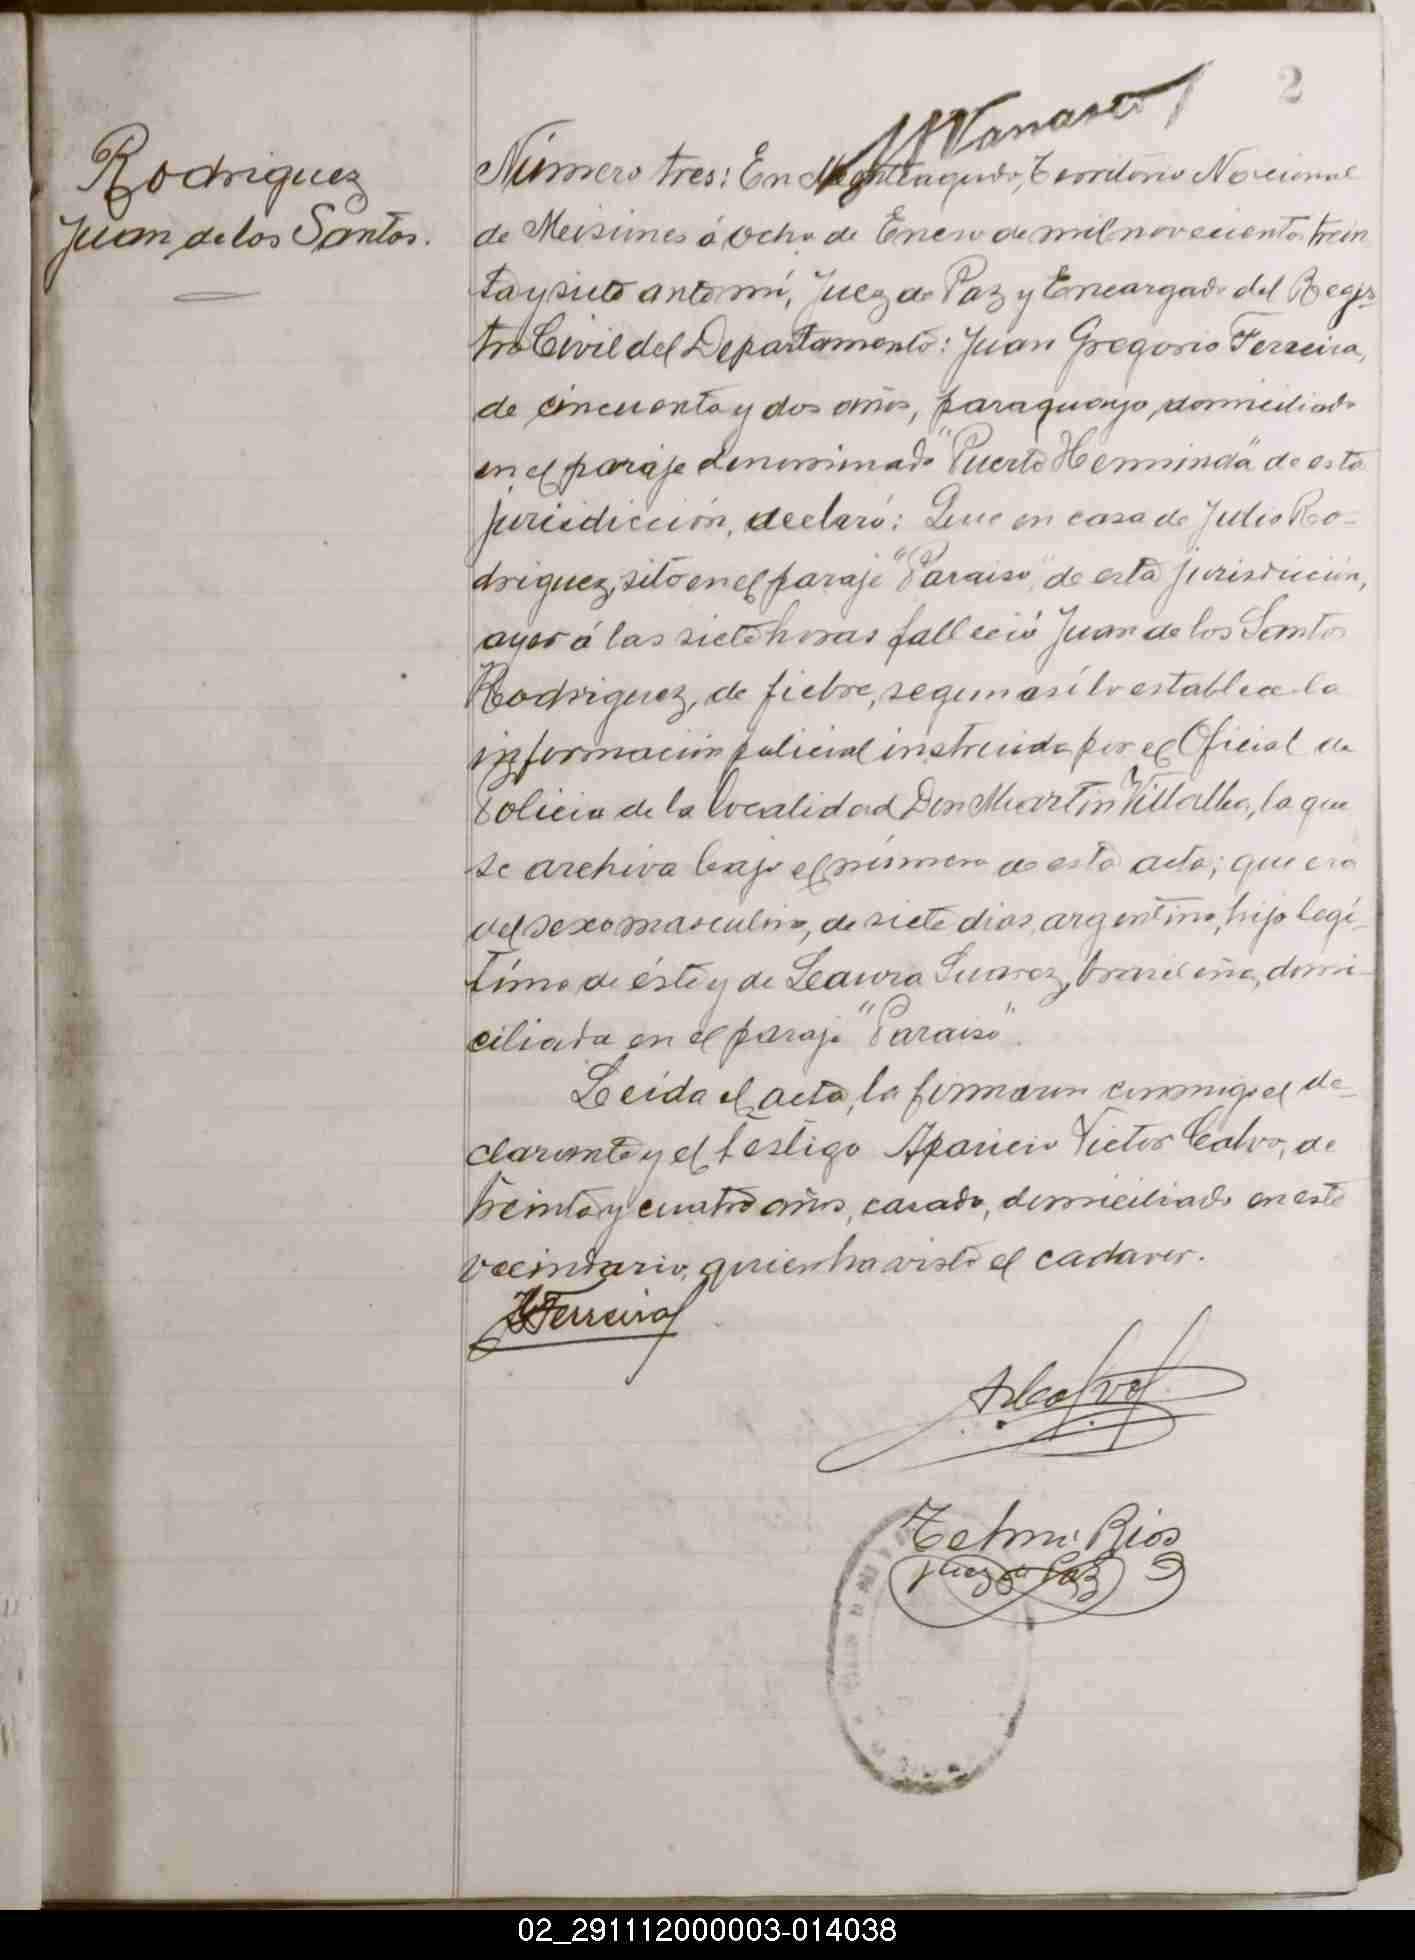 2
Rodriguez
Juan de los Santos.
Número tres: En Monteagudo, Territorio Nacional
de Misiones á ocho de Enero de mil novecientos trein
ta y siete ante mí, Juez de Paz y Encargado del Regis
tro Civil del Departamento: Juan Gregorio Ferreira,
de cincuenta y dos años, paraguayo, domiciliado
en el paraje denominado "Puerto Herminda" de esta
jurisdicción, declaró: Que en casa de Julio Ro-
driguez, sito en el paraje "Paraiso", de esta jurisdicción,
ayer á las siete horas falleció Juan de los Santos
Rodriguez, de fiebre, segun así lo establece la
información policial instruida por el Oficial de
Policia de la localidad Don Martin Villalba, la que
se archiva bajo el número de esta acta; que era
del sexo masculino, de siete dias, argentino, hijo legí-
timo de éste y de Laura Suarez, brasileña, domi-
ciliada en el paraje "Paraiso".
Leida el acta, la firmaron conmigo el de-
clarante y el testigo Aparicio Victor Calvo, de
treinta y cuatro años, casado, domiciliado en este
vecindario, quien ha visto el cadaver.
Ferreira
Calvo
Telmo Rios
Juez de Paz
02_291112000003-014038